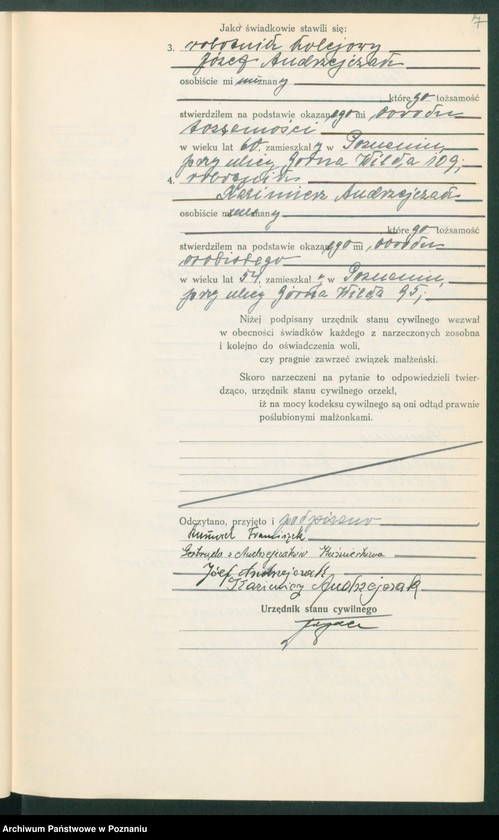 7
Jako świadkowie stawili się:
3. robotnik kolejowy
Józef Andrzejczak
osobiście mi nieznany
, które go tożsamość
stwierdziłem na podstawie okazanego mi dowodu
tożsamości
w wieku lat 60. zamieszkały w Poznaniu,
przy ulicy Górna Wilda 109;
4. robotnik
Kazimierz Andrzejczak
osobiście mi nieznany
, które go tożsamość
stwierdziłem na podstawie okazanego mi dowodu
osobistego
w wieku lat 54, zamieszkały w Poznaniu,
przy ulicy Górna Wilda 95;
Niżej podpisany urzędnik stanu cywilnego wezwał
w obecności świadków każdego z narzeczonych zosobna
i kolejno do oświadczenia woli,
czy pragnie zawrzeć związek małżeński.
Skoro narzeczeni na pytanie to odpowiedzieli twier-
dząco, urzędnik stanu cywilnego orzekł,
iż na mocy kodeksu cywilnego są oni odtąd prawnie
poślubionymi małżonkami.
Odczytano, przyjęto i podpisano
Franciszek
z Andrzejczaków
Józef Andrzejczak
Kazimierz Andrzejczak
Urzędnik stanu cywilnego
Archiwum Państwowe w Poznaniu